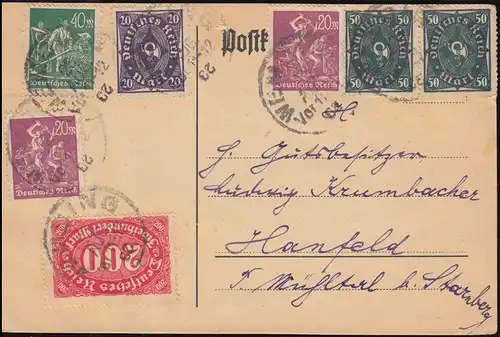 40m
Deutsches Reich
Deutsches Reich
20 20
Mark
Postk
20m
Deutsches Reich
Deutsches Reich
50 50
Mark
Deutsches Reich
50 50
Mark
20m
Deutsches Reich
Deutsches Reich
200
Zweihundert Mark
H.
H. Gutsbesitzer
Ludwig Krumbacher
Hanfeld
P. Mühltal b. Starnberg